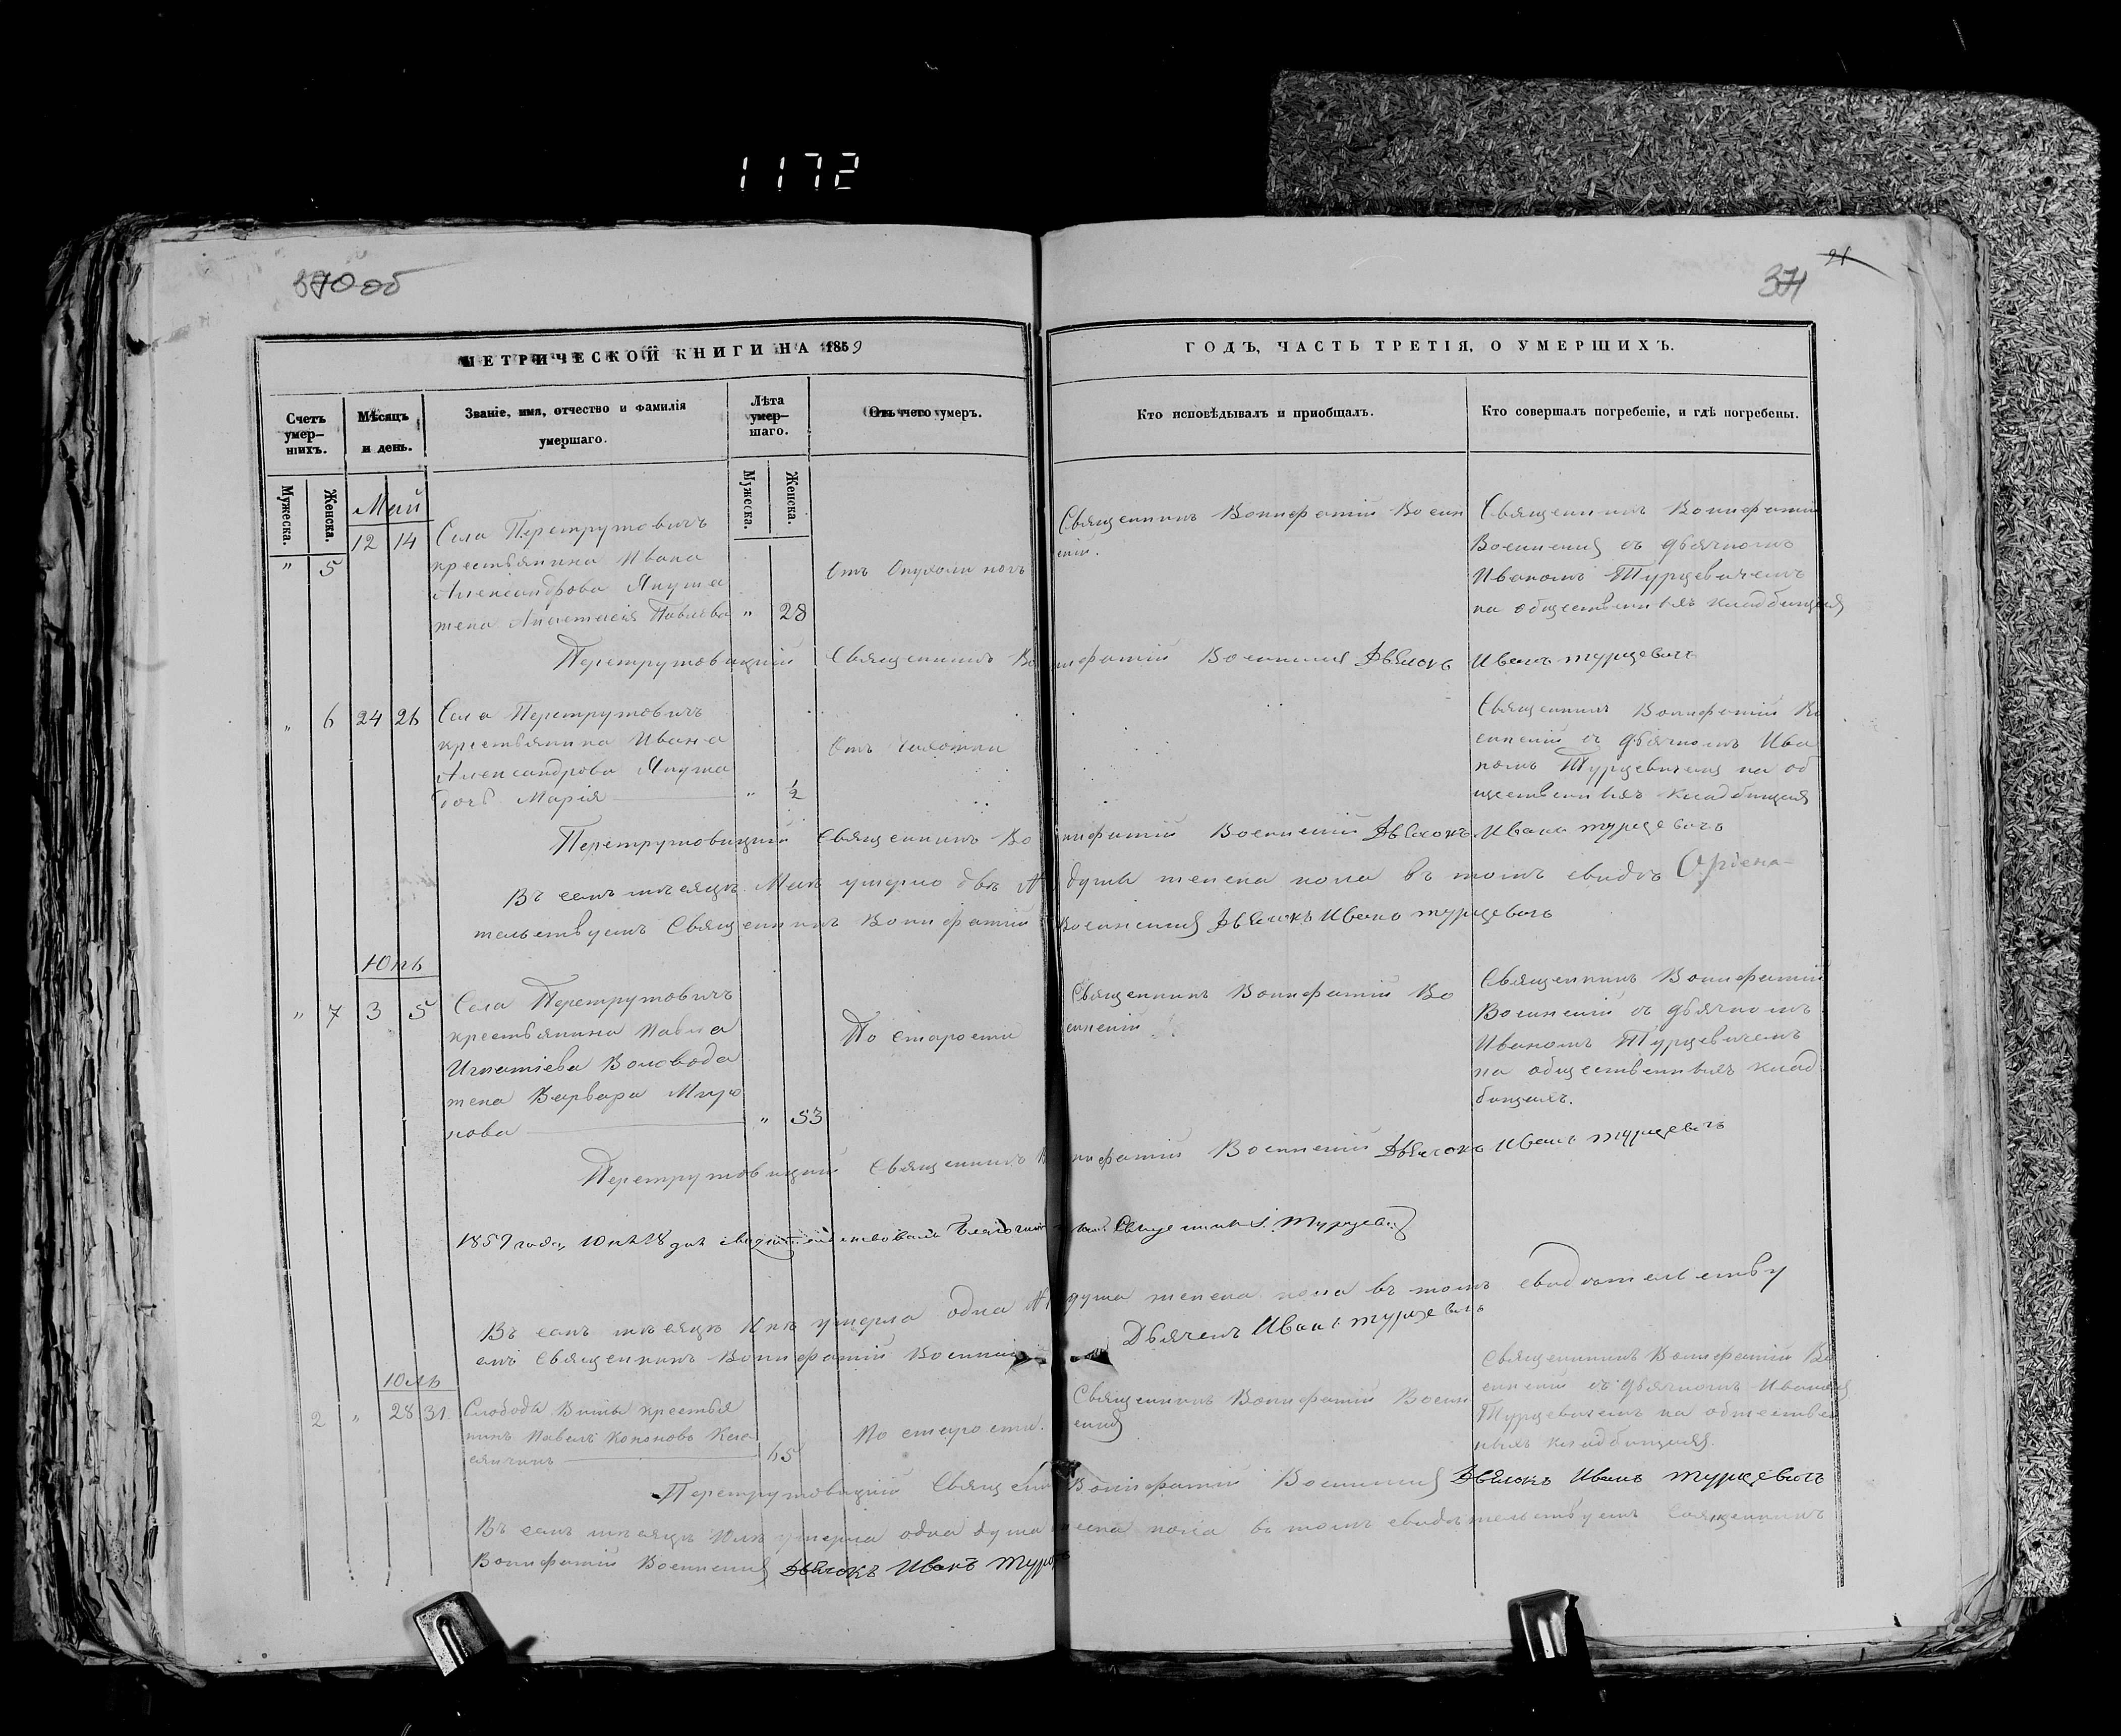 1172
370 об
371
21
МЕТРИЧЕСКОЙ КНИГИ НА 1859
ГОДЪ, ЧАСТЬ ТРЕТІЯ, О УМЕРШИХЪ.
Счетъ умер-шихъ.
Мѣсяцъ и день.
Званіе, имя, отчество и фамилія
умершаго.
Лѣта умер-шаго.
Отъ чего умеръ.
Кто исповѣдывалъ и пріобщалъ.
Кто совершалъ погребеніе, и гдѣ погребены.
Мужеска.
Женска.
Мужеска.
Женска.
Май
" 5 12 14
Села Перетрутовичъ
крестьянина Ивана
Александрова Якуша
жена Анастасія Павлова " 28
Отъ Опухоли ногъ
Священникъ Вонифатій Воен
скій.
Священникъ Вонифатій
Военскій съ дьячкомъ
Иваномъ Турцевичемъ
на общественныхъ кладбищах
Перетрутовицкій Священникъ Вонифатій Военский Дьячокъ Иванъ турцевичъ
" 6 24 26
Села Перетрутовичъ
крестьянина Ивана
Александрова Якуша
дочь Марія " ½
Отъ
Священникъ Вонифатій Во
енскій съ дьячкомъ Ива
номъ Турцевичемъ на об
щественныхъ кладбищах
Перетрутовицкій Священникъ Вонифатій Военскій Дьячокъ Иванъ турцевичъ
Въ семъ мѣсяцѣ Маѣ умерло двѣ души женска пола въ томъ свидѣ
тельствуетъ Священникъ Вонифатій Военский Дьячокъ Иванъ турцевичъ
Юнь
" 7 3 5
Села Перетрутовичъ
крестьянина Павла
Игнатіева Воловода
жена Варвара Миро
нова " 53
По старости
Священникъ Вонифатій Во
енскій
Священникъ Вонифатій
Военскій съ дьячкомъ
Иваномъ Турцевичемъ
на общественныхъ клад
бищахъ.
Перетрутовицкій Священникъ Вонифатій Военскій Дьячокъ Иванъ турцевичъ
1859 года, Юнѣ 18 дня Священникъ Турцевич
Въ семъ мѣсяцѣ Юнѣ умерла одна душа женска пола въ томъ свидѣтельству
етъ Священникъ Вонифатій Военский Дьячекъ Иванъ турцевичъ
Юль
2 " 28 31
Слободы крестья
нинъ Павелъ Кононовъ
65
По старости.
Священникъ Вонифатій Воен
ский
Священникъ Вонифатій Во
енский съ дьячкомъ Иваномъ
Турцевичемъ на обществен
ныхъ кладбищахъ.
Перетрутовицкій Священник Вонифатій Военский Дьячокъ Иванъ турцевичъ
Въ семъ мѣсяцѣ Юлѣ умерла одна душа пола въ томъ свидѣтельствуетъ Священникъ
Вонифатій Военский Дьячокъ Иванъ